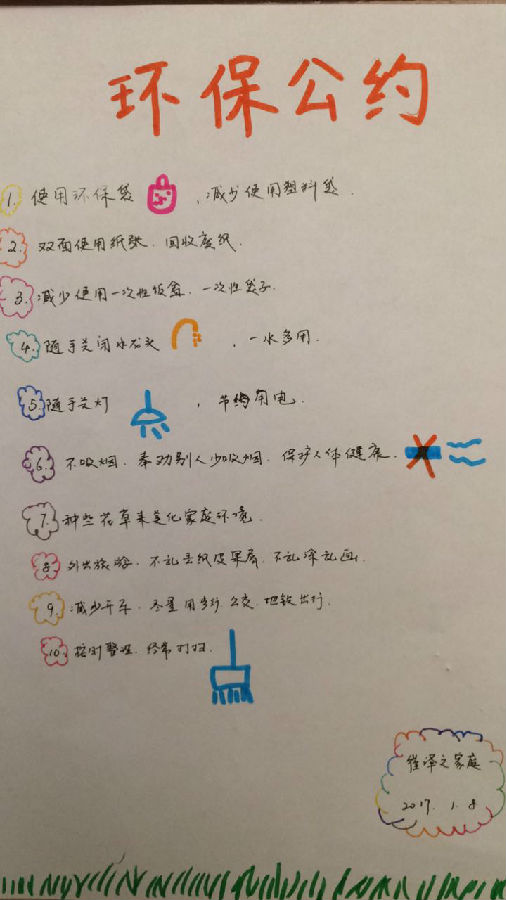 环保公约
1. 使用环保袋，减少使用塑料袋.
2. 双面使用纸张.回收废纸.
3. 减少使用一次性饭盒.一次性筷子.
4. 随手关闭水龙头，一水多用.
5. 随手关灯，节约用电.
6. 不吸烟.奉劝别人少吸烟.保护人体健康.
7. 种些花草来美化家庭环境.
8. 外出旅游，不乱丢纸皮果屑.不乱涂乱画.
9. 减少开车.尽量用步行公交.地铁出行.
10. 按时整理.经常打扫.
泽之家庭
2017.1.8